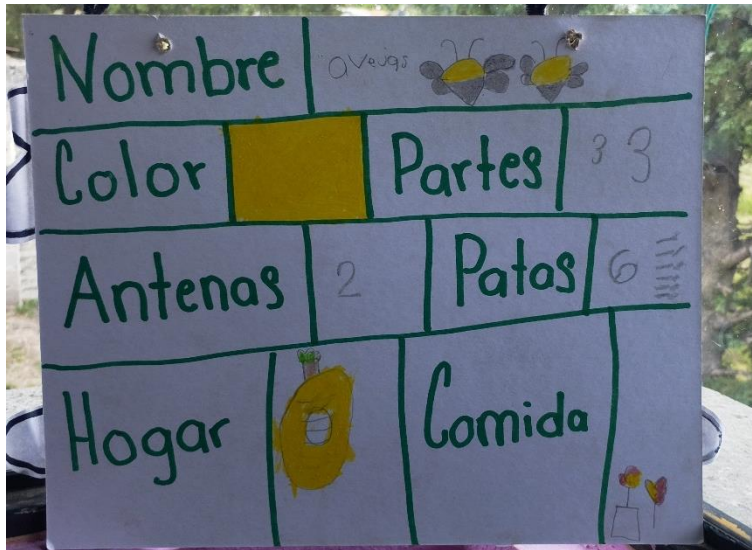 Nombre avejas
Color Partes 3 3
Antenas 2 Patas 6
Hogar Comida